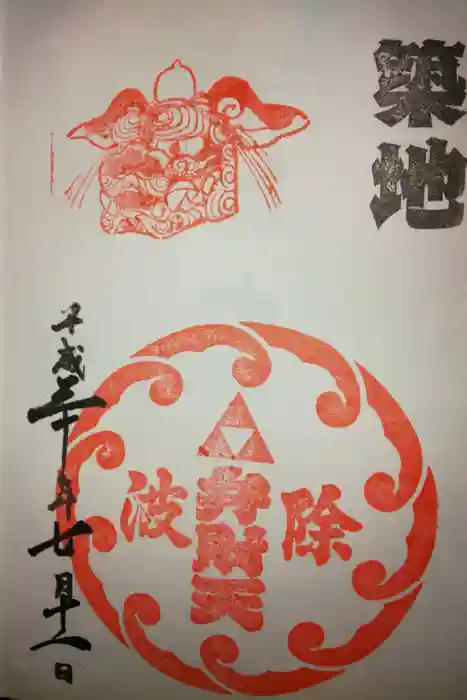 築地
除
弁財天
波
平成三十年七月十一日